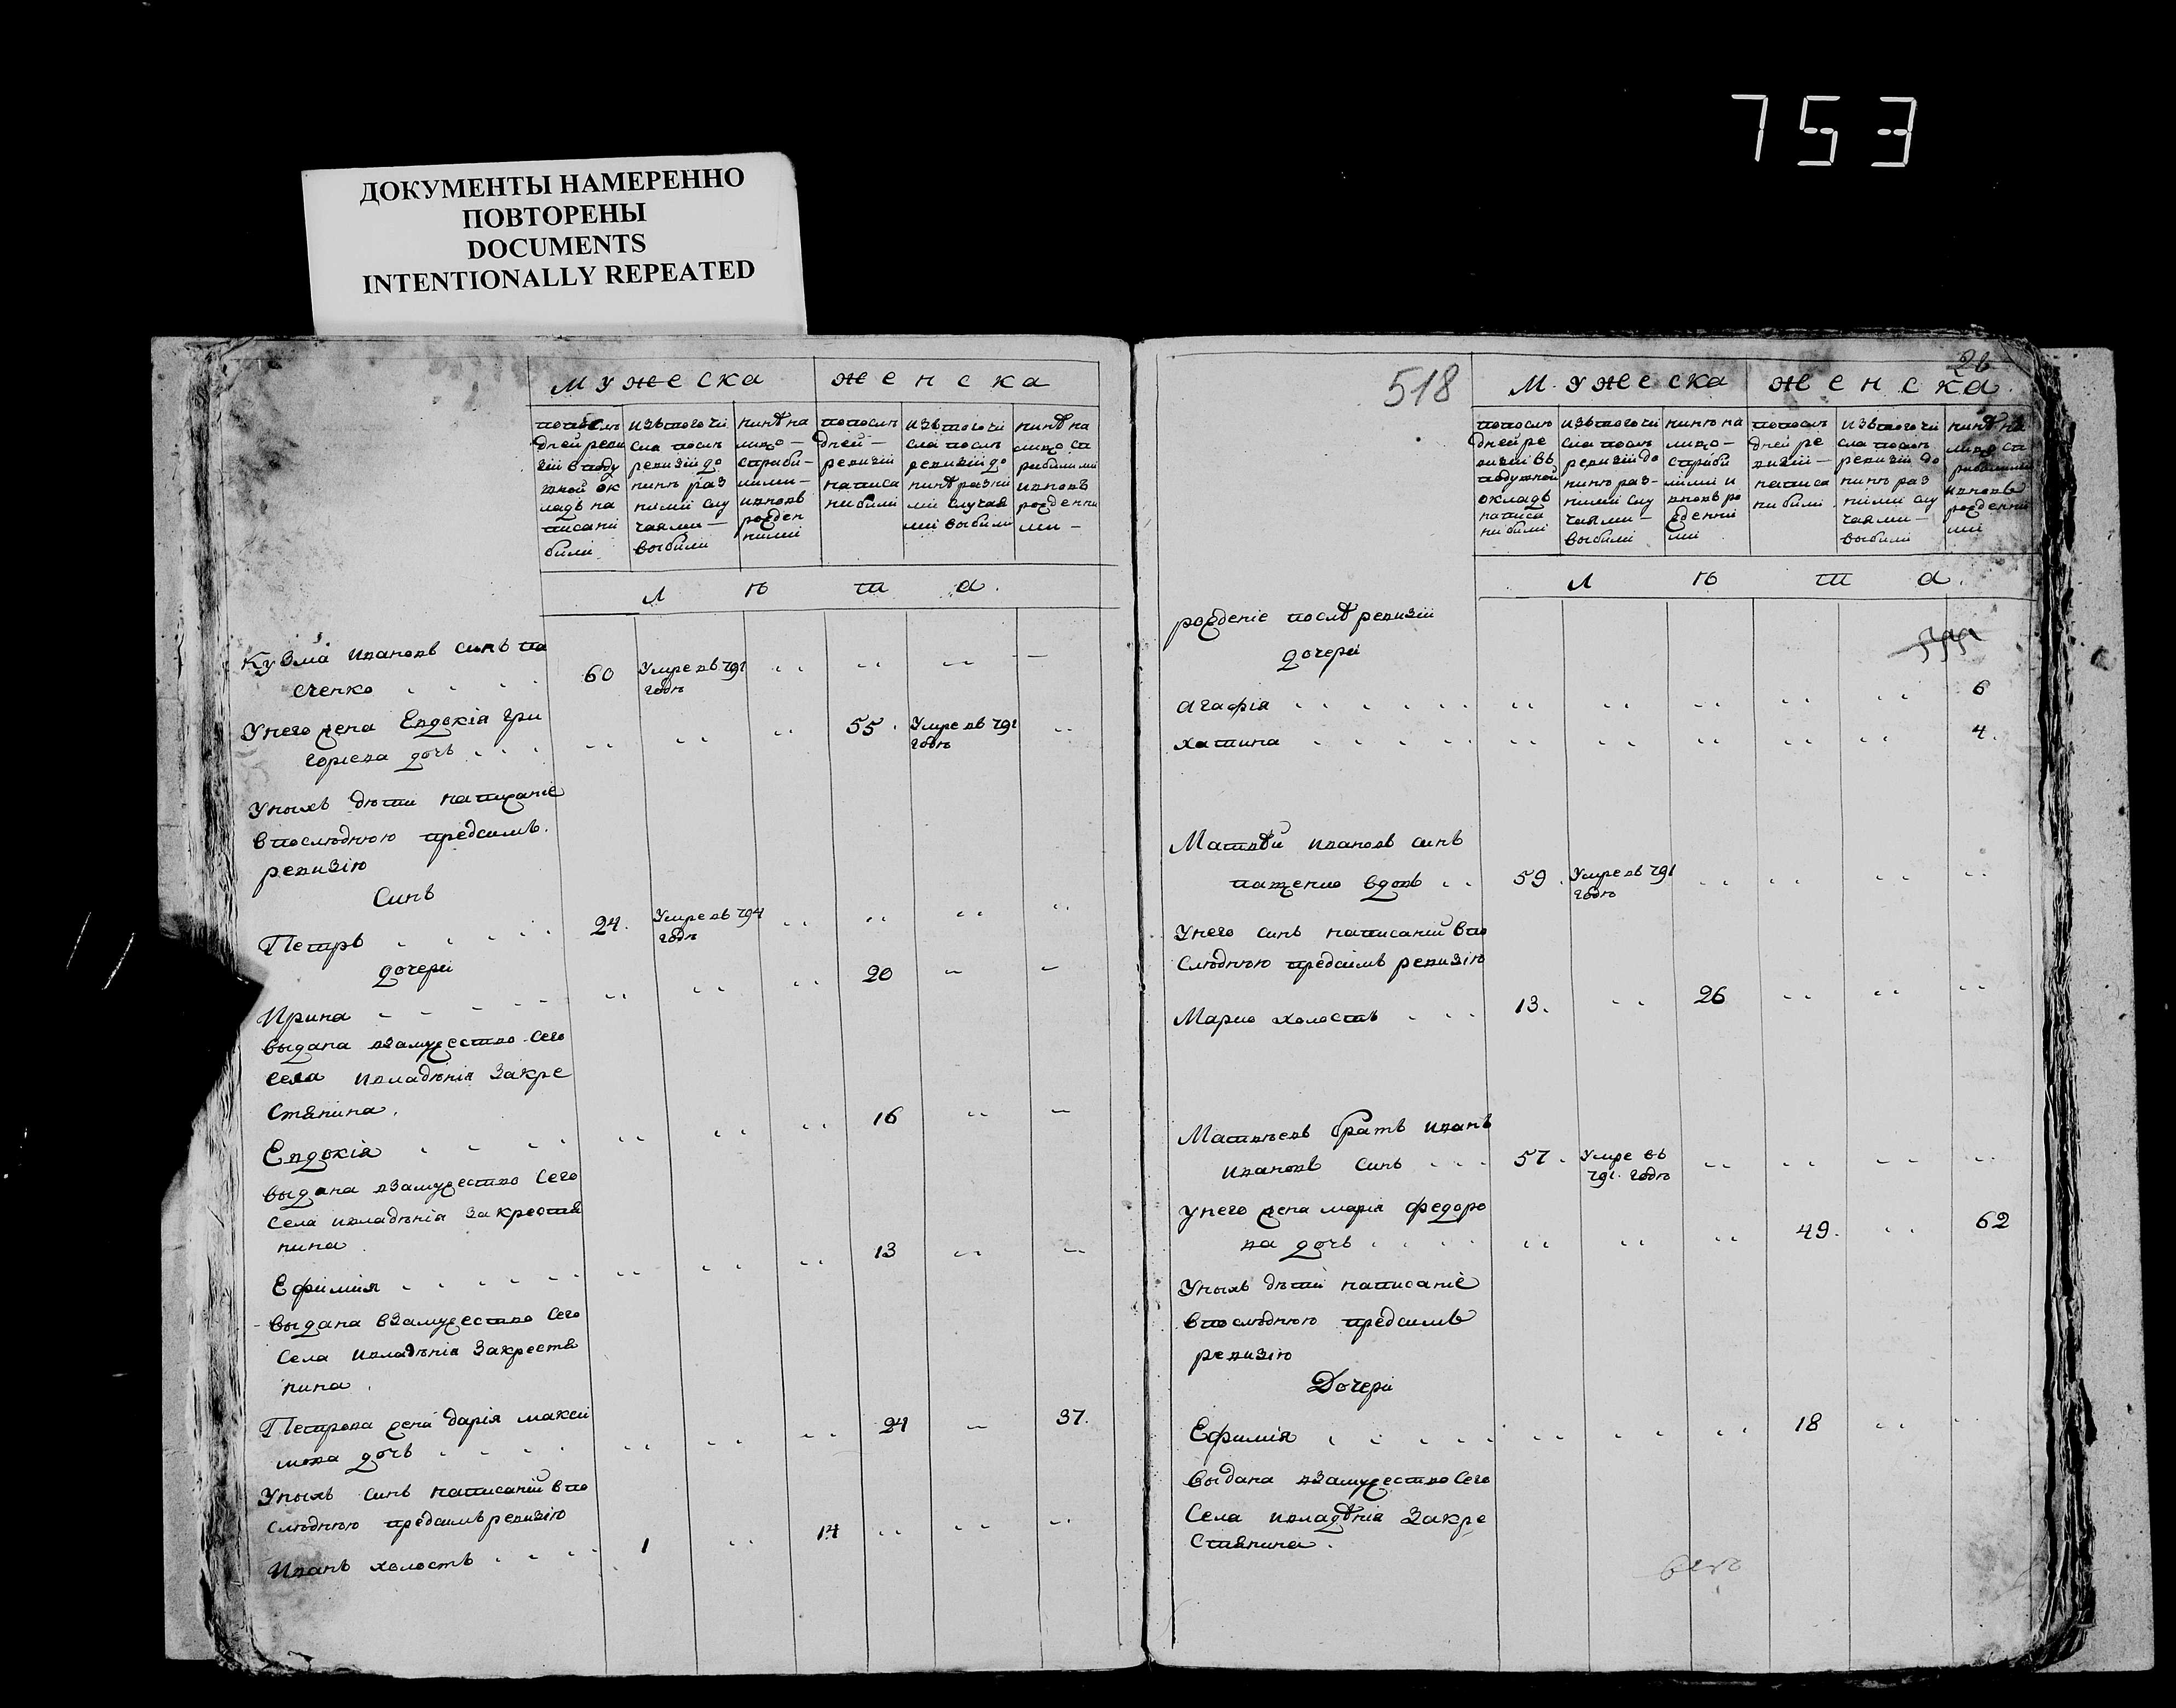 753
ДОКУМЕНТЫ НАМЕРЕННО
ПОВТОРЕНЫ
DOCUMENTS
INTENTIONALLY REPEATED
мужеска женска
попослѣ
дней реви
зіи в поду
шной ок
ладъ на
писани
били
изътого чи
сла послѣ
ревизіи до
нинѣ раз
ними слу
чаями —
выбили
нинѣ на
лицо —
сприби-
лими —
ивновь
рожден
ними
попослѣ
дней —
ревизіи
написа
ни били
изътого чи
сла послѣ
ревизіи до
нинѣ разни
ми случая
ми выбили
нинѣ на
лицо сп
рибилими
ивновъ
рожденни
ми —
л ѣ т а.
Кузма Ивановъ синъ па
сченко 60 Умре въ 791
годѣ
Унего жена Евдокія гри
горіева дочь 55. Умре въ 791
годѣ
Унихъ дѣти написаніе
впослѣднюю предсимъ.
ревизію
Синъ
Петръ 24. Умре въ 794
годѣ
дочери
Ирина 20
выдана взамужество сего
села ивладѣнія Закре
стянина.
Евдокія 16
выдана взамужество сего
села ивладѣнія Закрестя
нина.
Ефимия 13
выдана взамужество сего
села ивладѣнія Закрестя
нина.
Петрова жена дарія макси
мова дочь 24 37.
Унихъ синъ написаній впо
слѣднюю предсимъ ревизію
Иванъ холостъ 1 14
518
26
мужеска женска.
попослѣ
дней ре
визіи въ
подушной
окладъ
написа
ни били
изътого чи
сла послѣ
ревизіи до
нинѣ раз-
ними слу
чаями —
выбили
нинѣ на
лицо —
сприби
лими и
вновь ро
жденни
ми
попослѣ
дней ре
визіи —
написа
ни били
изътого чи
сла послѣ
ревизіи до
нинѣ раз
ними слу
чаями —
выбили
нинѣ на
лицо сп
рибилими
ивновь
рожденни
ми
л ѣ т а.
рожденіе послѣ ревизіи
дочери
Агафія 6
хатина 4.
Матвѣй Ивановъ синъ
пащенко вдовъ 59. Умре въ 791
годѣ
Унего синъ написаній впо
слѣднюю предсимъ ревизію
Марко холостъ 13. 26
Матвѣевъ братъ иванъ
ивановъ синъ 57. Умре въ
791. годѣ
Унего жена марія федоро
ва дочь 49. 62
Унихъ дѣти написаніе
впослѣднюю предсимъ
ревизію
Дочери
Ефимія 18
выдана взамужество сего
села ивладѣнія Закре
стянина.